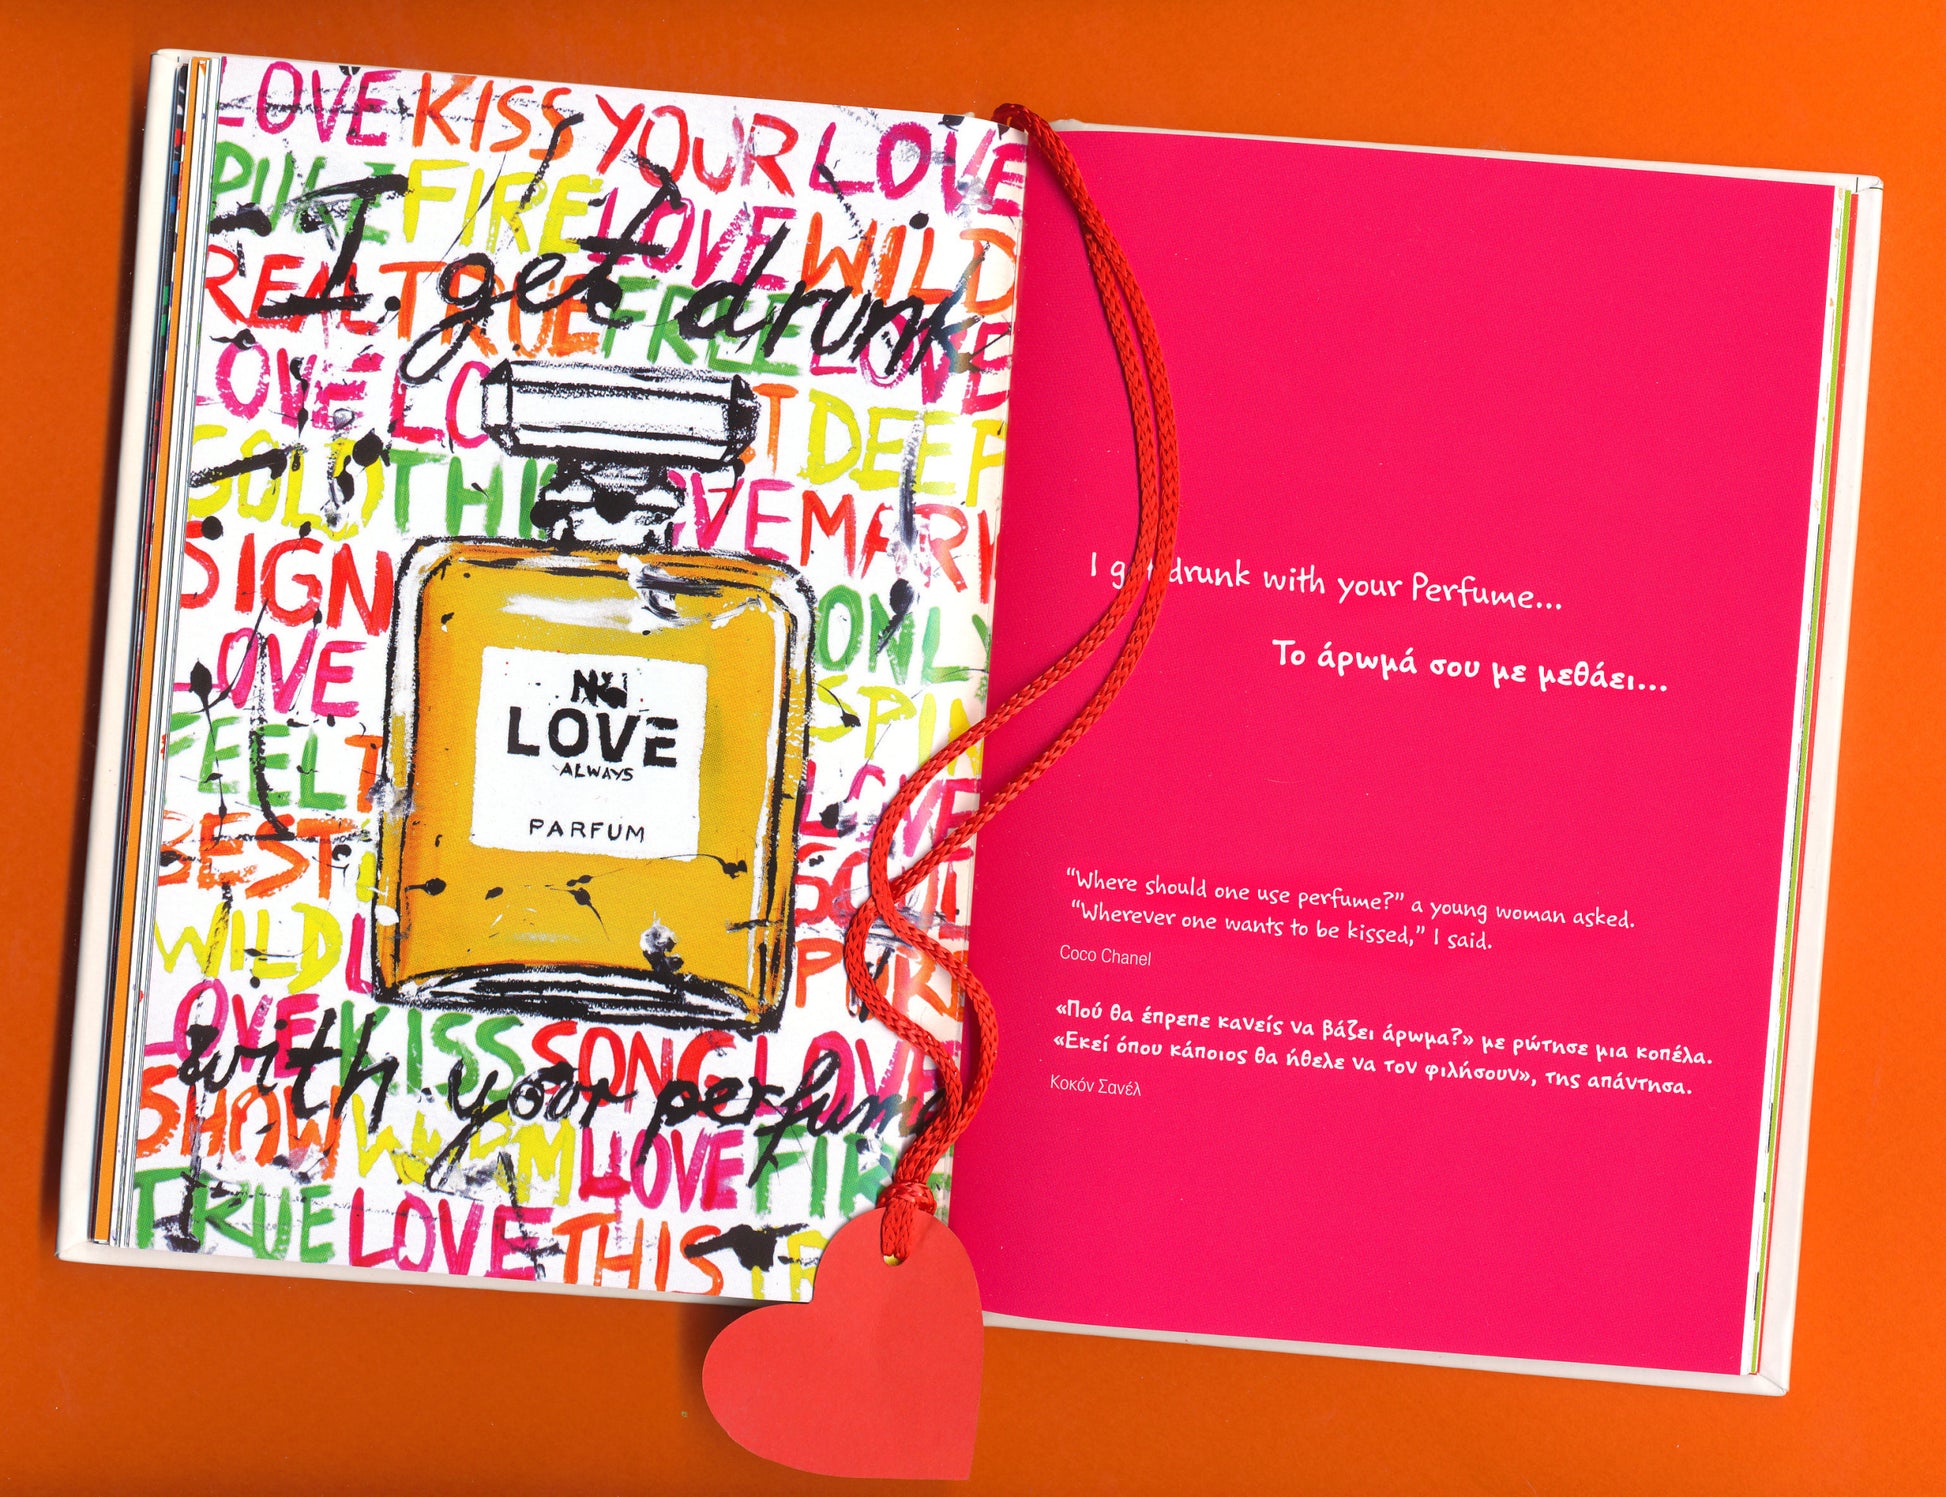 LOVE KISS YOUR LOVE
PURE FIRE LOVE WILD
REAL TRUE FREE LOVE
I get drunk
LOVE DEEP
GOLD LOVE MARK
SIGN ONLY
LOVE
FEEL LOVE
BEST
WILD PURE
LOVE KISS SONG LOVE
with your perfume
SHOW LOVE FIRE
TRUE LOVE THIS
LOVE
ALWAYS
PARFUM
I get drunk with your Perfume...
Το άρωμά σου με μεθάει...
“Where should one use perfume?” a young woman asked.
“Wherever one wants to be kissed,” I said.
Coco Chanel
«Πού θα έπρεπε κανείς να βάζει άρωμα?» με ρώτησε μια κοπέλα.
«Εκεί όπου κάποιος θα ήθελε να τον φιλήσουν», της απάντησα.
Κοκόν Σανέλ